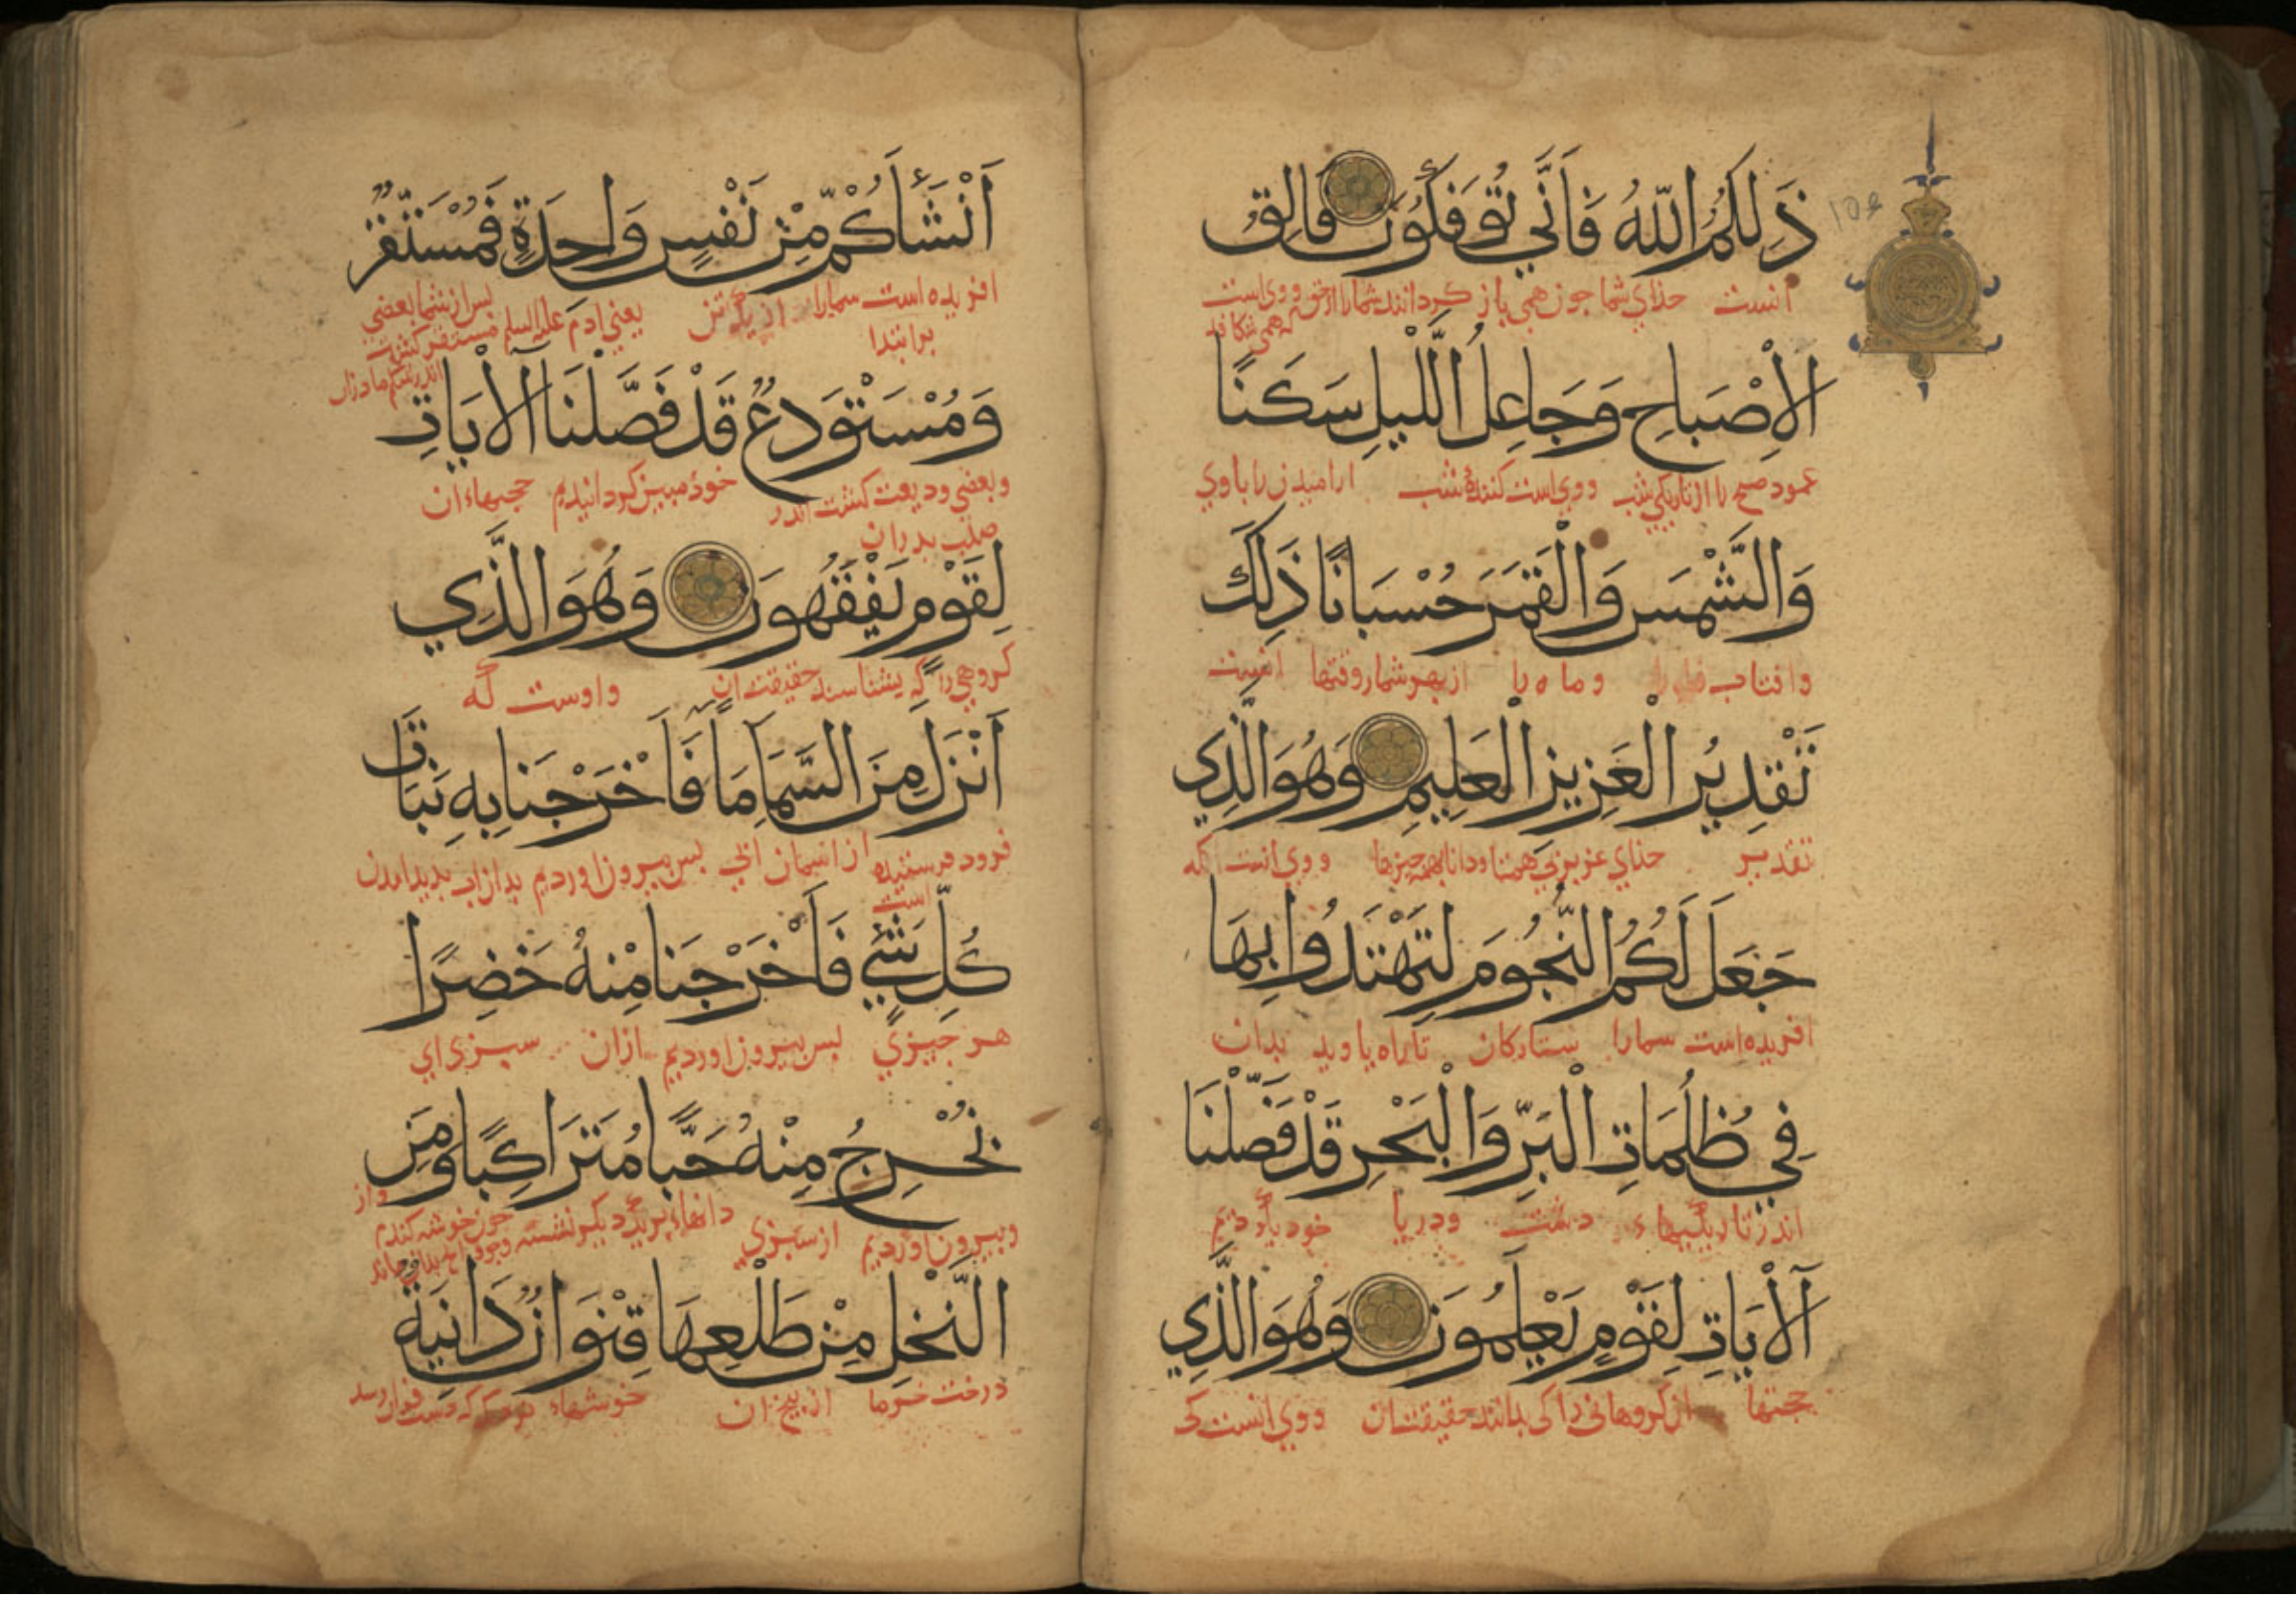 ذَلِكُمُ اللّٰهُ فَاَنَّي تُوْفَكُوْنَ فَالِقُ
انست خذاي شما جون همي باز كردانند شمارا از حق ووي است
الْاِصْبَاحِ وَجَاعِلُ الَّلْيلِ سَكَنًا
عمود صبح را از تاريكي شب ووي است كنندهٔ شب اراميدن را باوي
وَالشَّمْسَ وَالْقَمَرَ حُسْبَانًا ذَلِكَ
وافتاب وماه را از بهر شمار وقتها انست
تَقْدِيْرُ الْعَزِيزِ الْعَلِيمِ وَهُوَ الَّذِي
تقدير خذاي عزيز بي همتا ودانا بهمه چيزها ووي انست كه
جَعَلَ لَكُمُ النُّجُومَ لِتَهْتَدُوا بِهَا
افريده است شمارا ستاركان تا راه يا ويد بدان
فِي ظُلُمَاتِ الْبَرِّ وَالْبَحْرِ قَدْ فَصَّلْنَا
اندر تاريكيهاء دشت ودريا خود ياد كرديم
اْلآيَاتِ لِقَوْمٍ يَعْلَمُونَ وَهُوَ الَّذِي
حجتها از كروهاني را كي بدانند حقيقت ان ووي انست كي
اَنْشَأَكُمْ مِّنْ نَفْسٍ وَاحِدَةٍ فَمُسْتَقَرٌّ
افريده است شمارا از يك تن يعني ادم عليه السلم بس از شما بعضي
مستقر كشت
اندر شكم مادران
وَمُسْتَوْدَعٌ قَدْ فَصَّلْنَا اْلآيَاتِ
وبعضي وديعت كشت اندر خوذ مبين كردانيديم حجيهاء ان
صلب بدران
لِقَوْمٍ يَفْقَهُونَ وَهُوَ الَّذِي
كروهي را كه بشناسند حقيقت ان واوست كه
اَنْزَلَ مِنَ السَّمَآءِ مَآءً فَاَخْرَجْنَا بِهِ نَبَاتَ
فرود فرستيده است از اسمان ابي بس بيرون اورديم بدان اب بديد امدن
كُلِّ شَيْءٍ فَاَخْرَجْنَا مِنْهُ خَضِرًا
هر چيزي بس بيرون اورديم ازان سبزي اي
نُخْرِجُ مِنْهُ حَبًّا مُتَرَاكِبًا وَمِنَ
وبيرون اورديم از سبزي دانهاء بريك ديكر نشسته جون خوشه كندم واز
النَّخْلِ مِنْ طَلْعِهَا قِنْوَانٌ دَانِيَةٌ
درخت خرما از بيخ ان خوشهاء